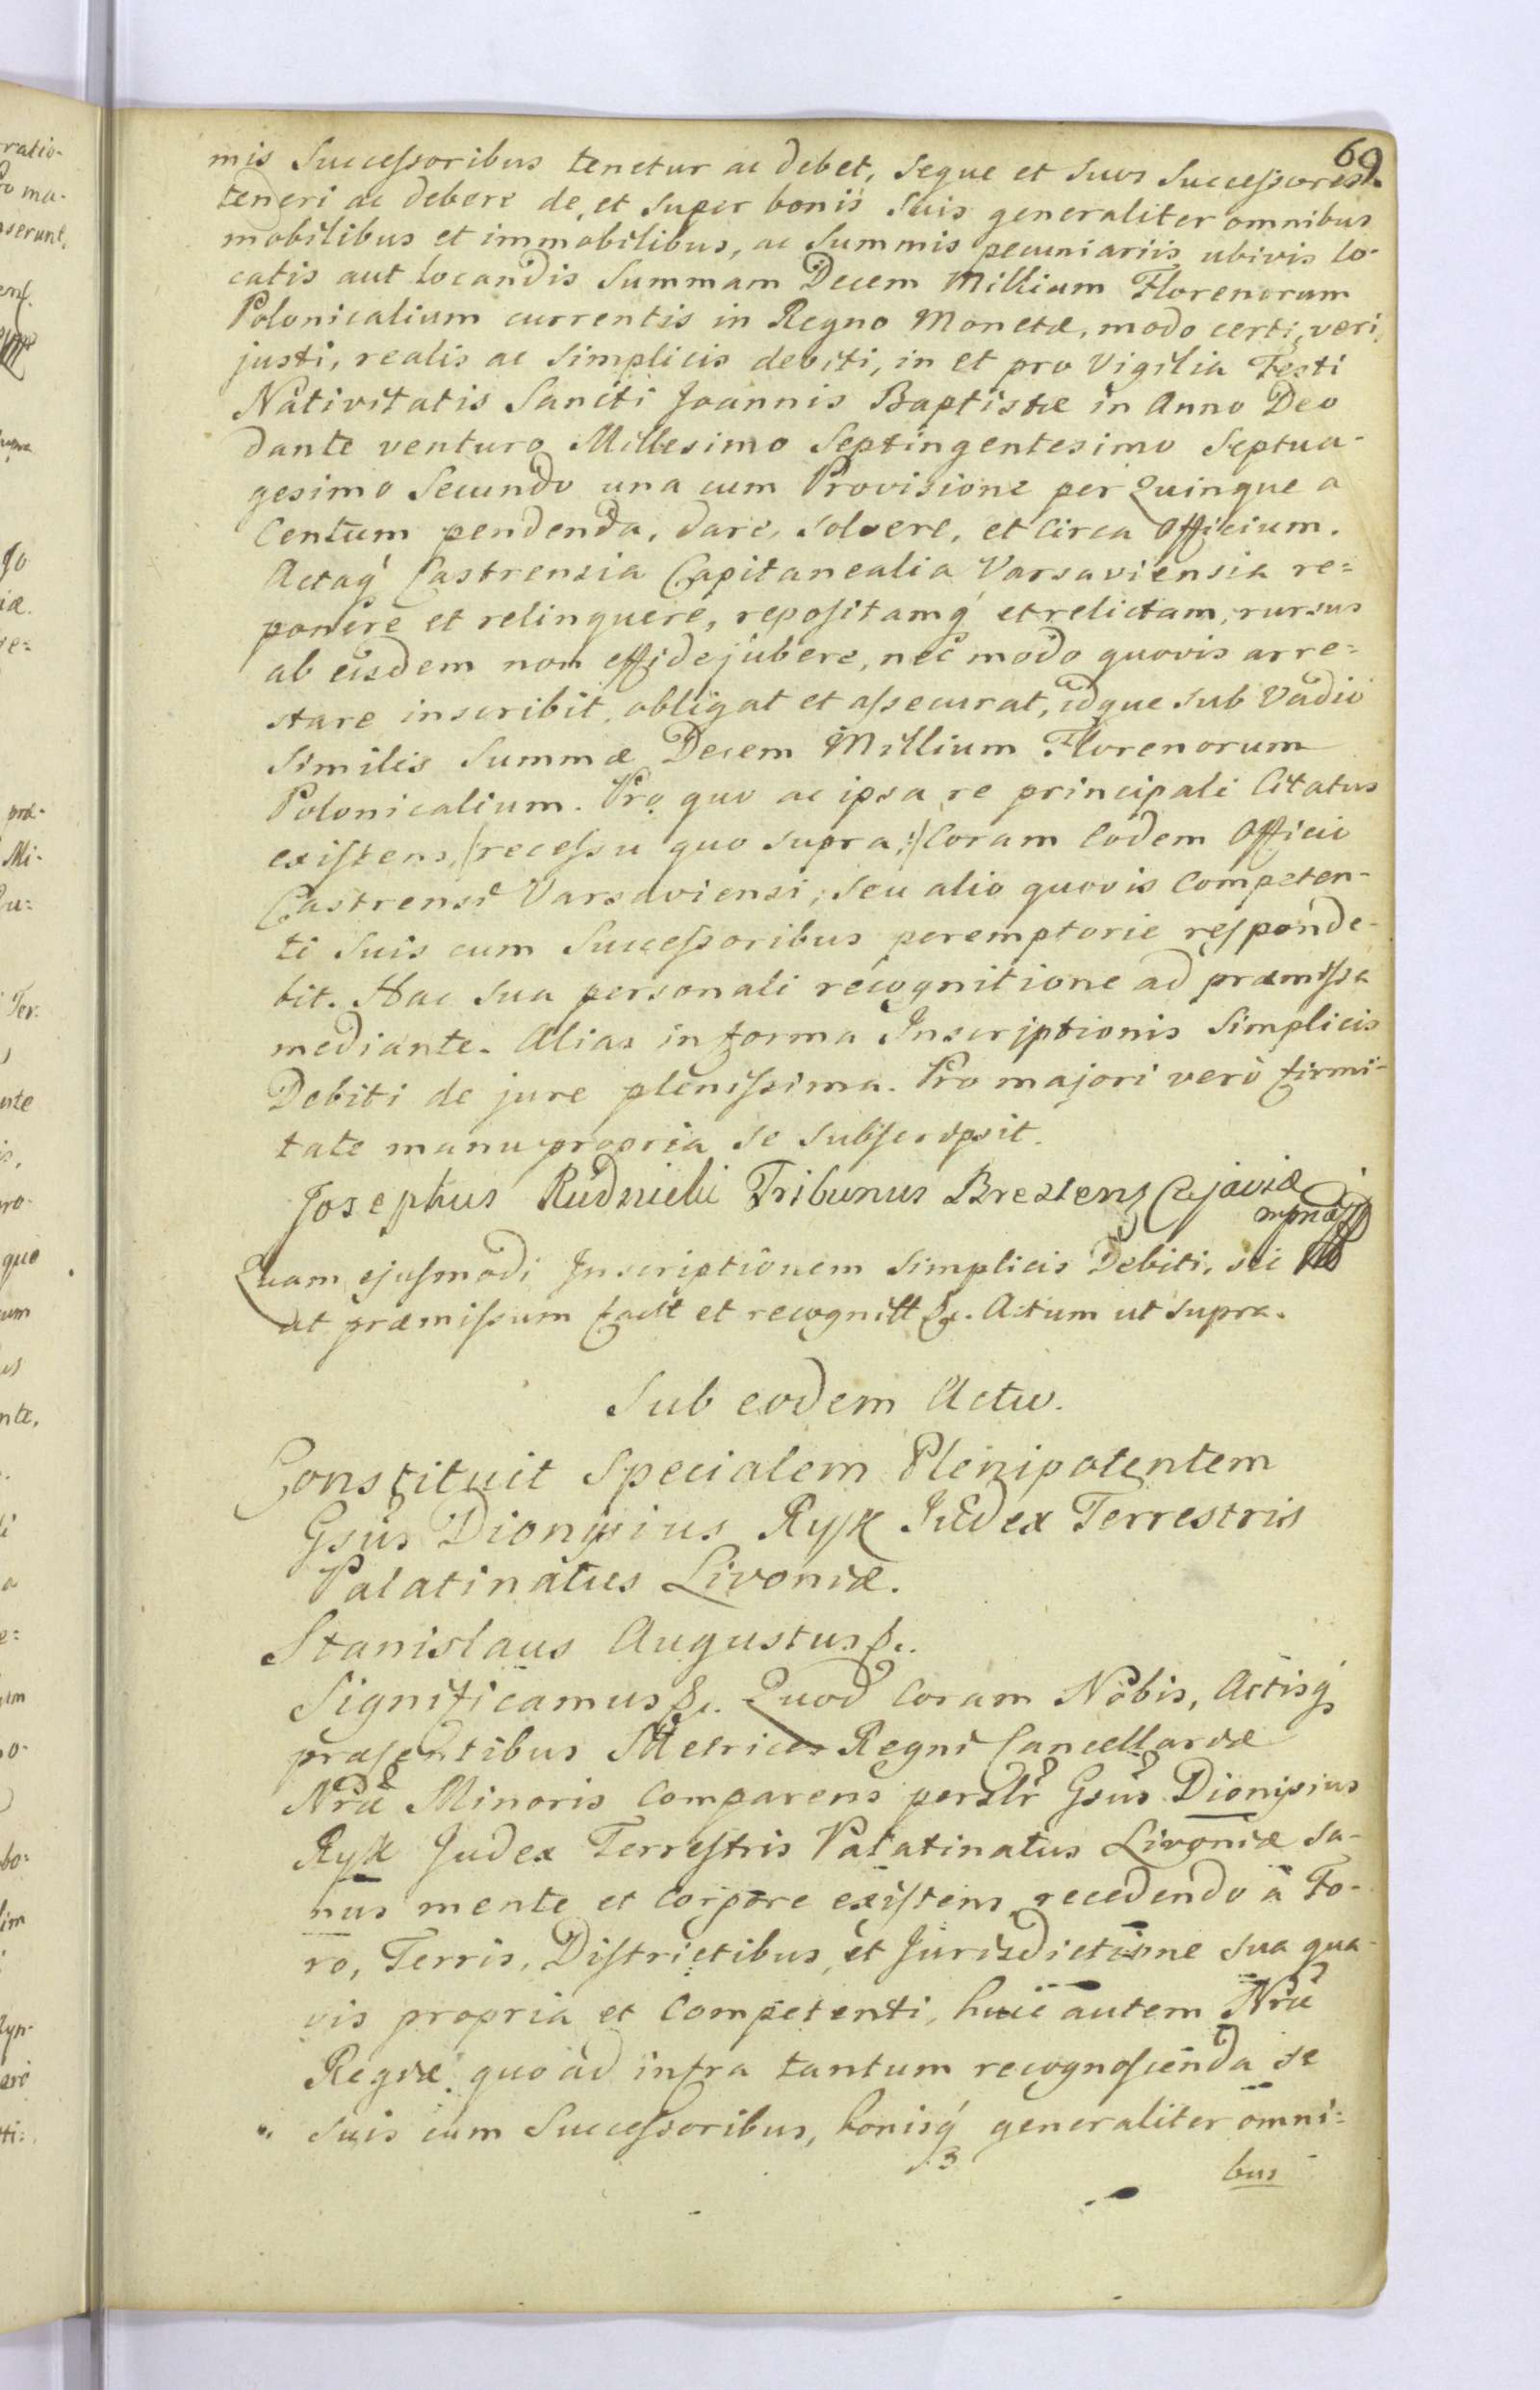 69
mis Successoribus tenetur ac debet, seque et suos Successores
teneri ac debere de, et super bonis suis generaliter omnibus
mobilibus et immobilibus, ac summis pecuniariis ubivis lo-
catis aut locandis Summam Decem Millium Florenorum
Polonicalium currentis in Regno Monetæ, modo certi, veri,
justi, realis ac simplicis debiti, in et pro Vigilia Festi
Nativitatis Sancti Joannis Baptistæ in Anno Deo
dante venturo Millesimo Septingentesimo Septua-
gesimo Secundo una cum Provisione per Quinque a
Centum pendenda, dare, solvere, et circa Officium.
Actaq́ Castrensia Capitanealia Varsaviensia re=
ponere et relinquere, repositamq́ et relictam, rursus
ab eisdem non effidejubere, nec modo quovis arre=
stare inscribit, obligat et assecurat, idque sub Vadio
similis Summæ Decem Millium Florenorum
Polonicalium. Pro quo ac ipsa re principali Citatus
existens, /recessu quo supra,:/ Coram Eodem Officio
Castrensi Varsaviensi, seu alio quovis Competen-
ti suis cum Successoribus peremptorie responde-
bit. Hac sua personali recognitione ad præmissa
mediante. Alias in forma Inscriptionis Simplicis
Debiti de jure plenissima. Pro majori verò firmi-
tate manu propria se subscripsit.
Josephus Rudnicki Tribunus Brestens Cujaviæ
mpria
Quam ejusmodi Inscriptionem Simplicis Debiti, sic
ut præmissum factt et recognitt &. Actum ut supra.
Sub eodem Actu.
Constituit Specialem Plenipotentem
Gsus Dionysius Ryk Judex Terrestris
Palatinatus Livoniæ.
Stanislaus Augustus &.
Significamus &. Quod Coram Nobis, Actisq́
præsentibus Metrices Regni Cancellariæ
Nræ Minoris Comparens persllr Gsus Dionisius
Ryk Judex Terrestris Palatinatus Livoniæ sa-
nus mente et corpore existens, recedendo à Fo-
ro, Terris, Districtibus, et Jurisdictione sua qua-
vis propria et Competenti, huic autem Nræ
Regiæ quoad infra tantum recognoscenda se
suis cum Successoribus, bonisq́ generaliter omni=
bus